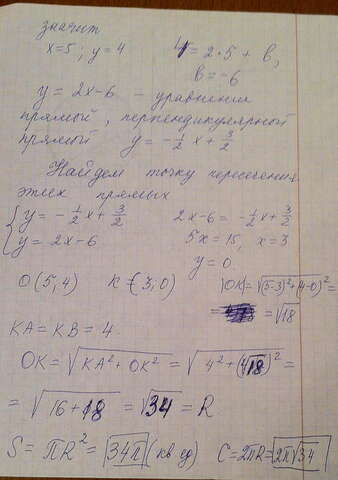 значит
x=5 ; y=4 4 = 2·5 + b,
b = -6
y = 2x-6 - уравнения
прямый, перпендикулярной
прямый y = -1/2 x + 3/2
Найдем точку пересечения
этих прямых
{ y = -1/2 x + 3/2 2x-6 = -1/2 x + 3/2
y = 2x-6 5x = 15, x = 3
y = 0
O (5,4) K = (3;0) |OK| = √((5-3)²+(4-0)²) =
= √18
KA = KB = 4.
OK = √(KA² + OK²) = √(4² + (√18)²) =
= √(16+18) = √34 = R
S = πR² = 34π (кв ед) C = 2πR = 2π√34